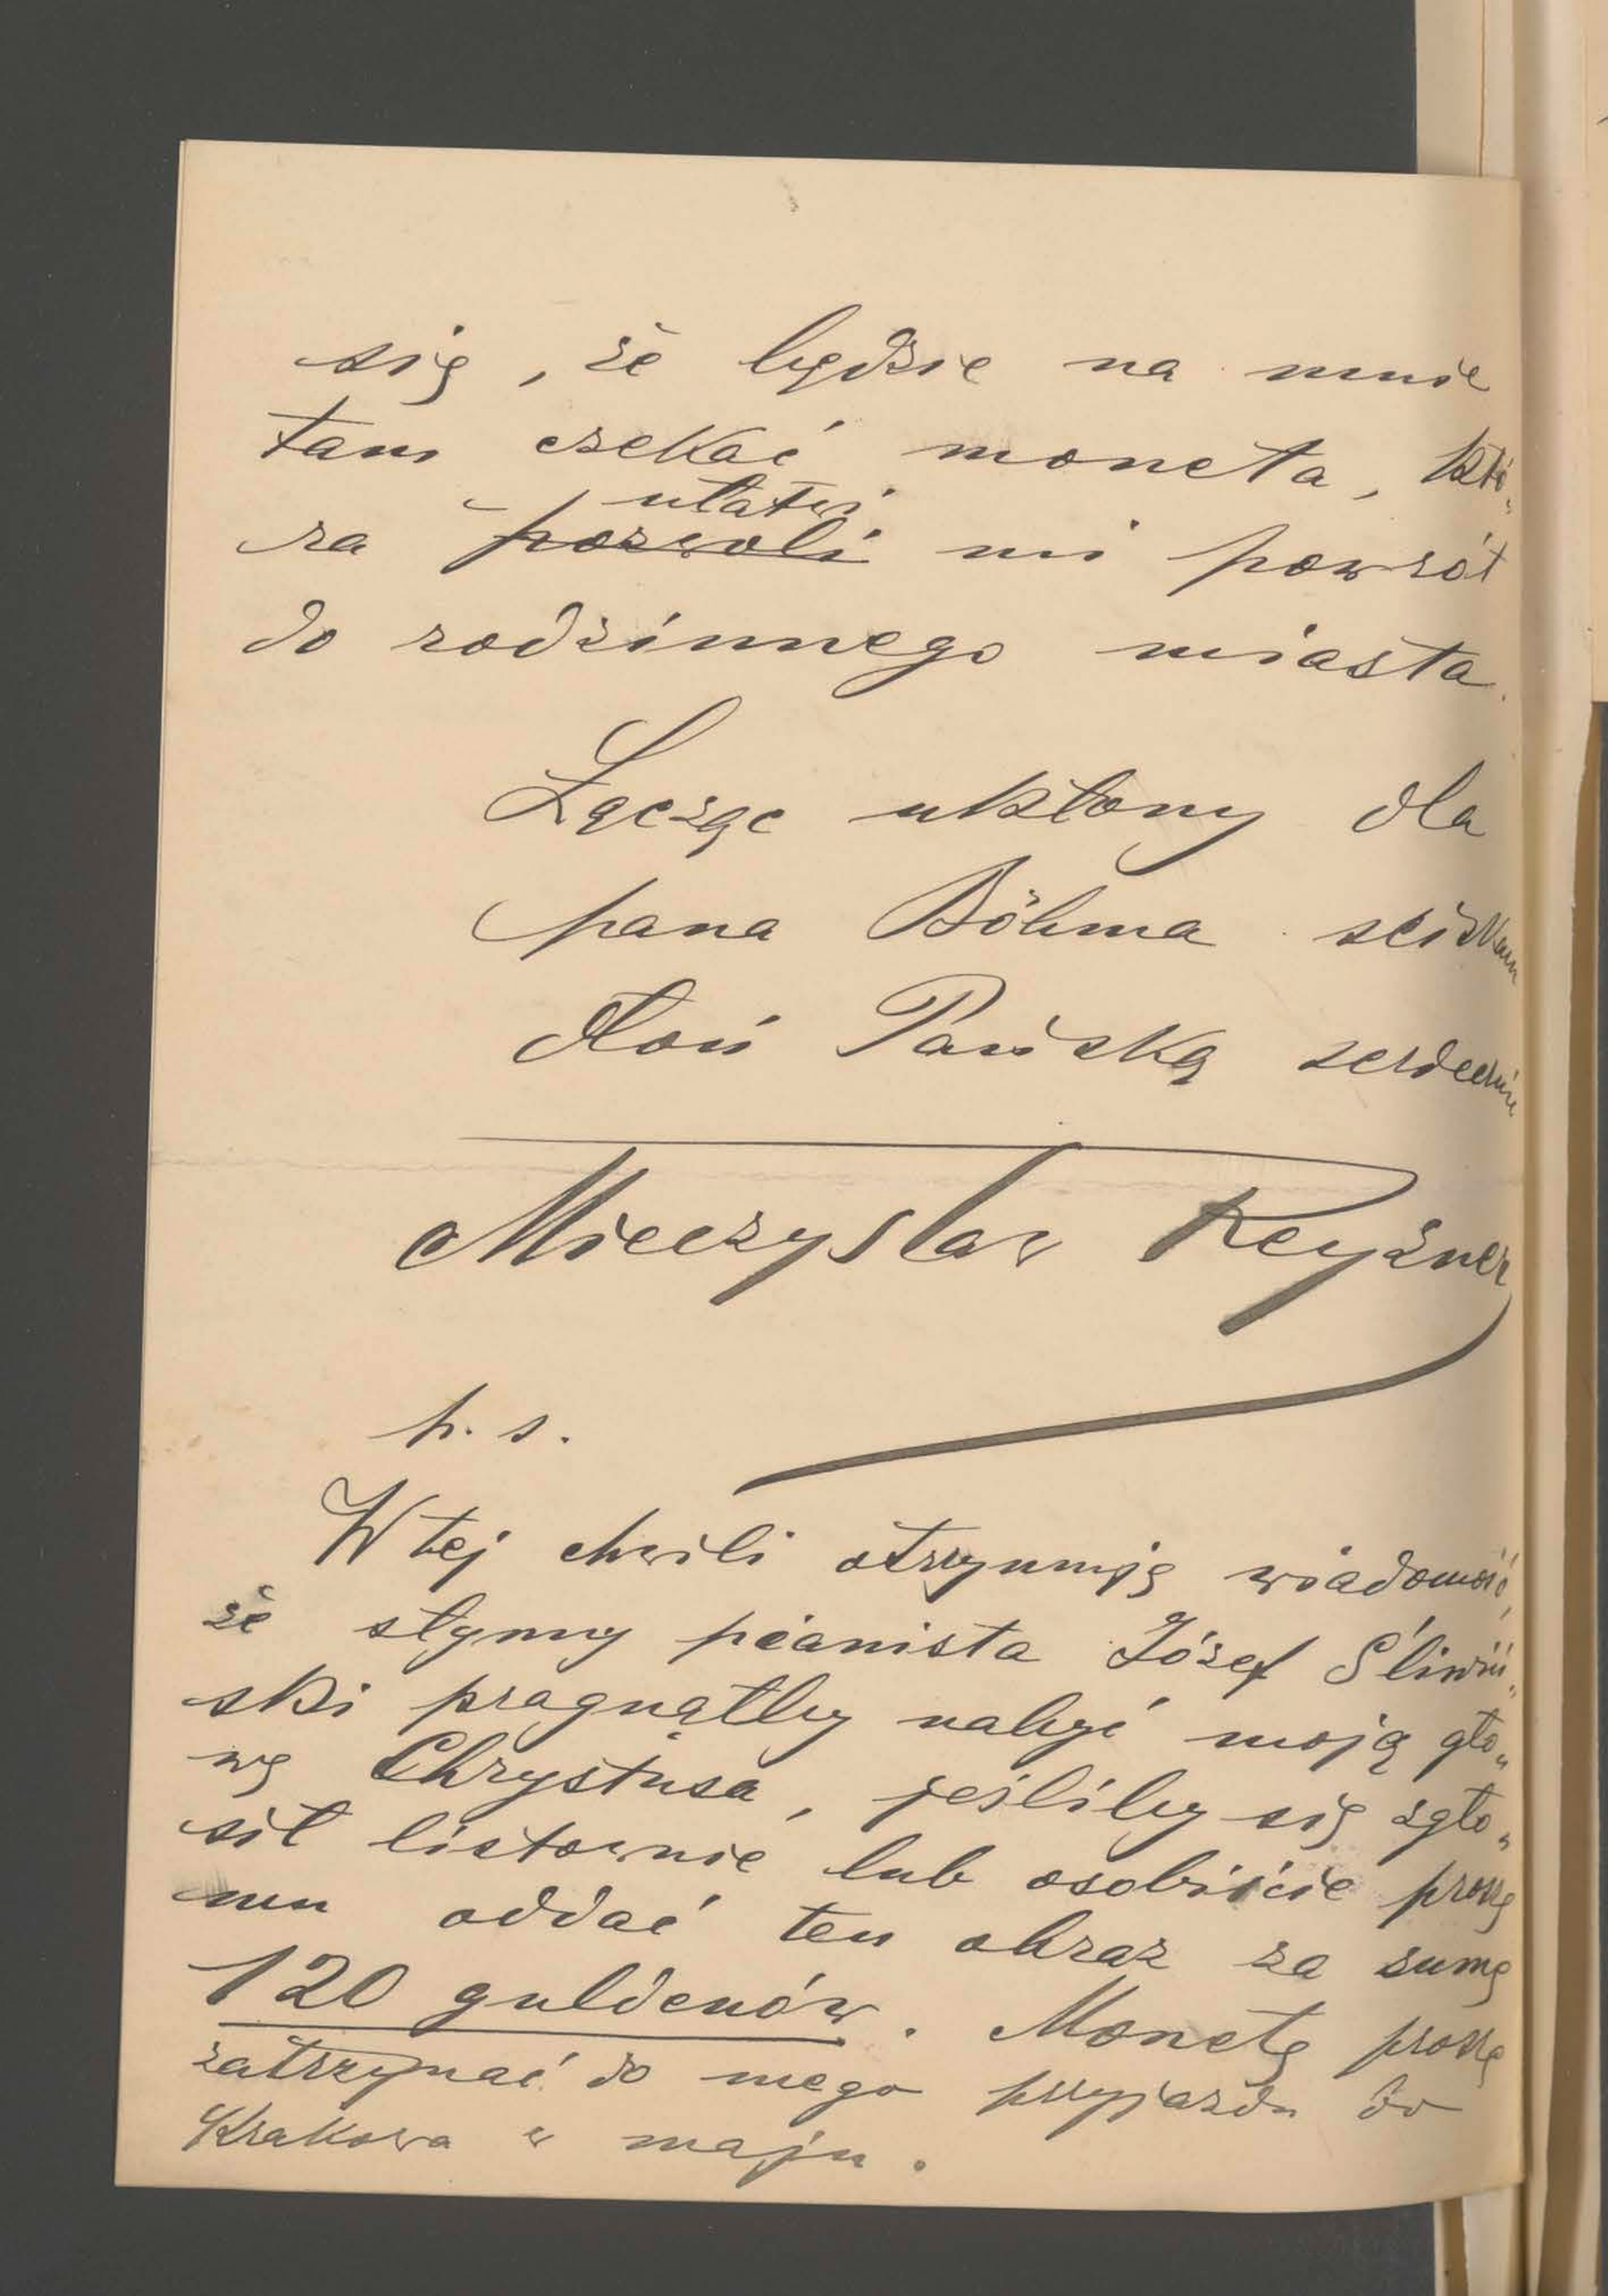 się, że będzie na mnie
tam czekać moneta, któ„
ułatwi
ra pozwoli mi powrót
do rodzinnego miasta.
Łącząc ukłony dla
pana Böhma ściskam
dłoń Pańską serdecznie
Mieczysław Reyzner
p. s.
W tej chwili otrzymuję wiadomość,
że słynny pianista Józef Śliwiń„
ski pragnąłby nabyć moją gło„
wę Chrystusa, jeśliby się zgło„
sił listownie lub osobiście proszę
mu oddać ten obraz za sumę
120 guldenów. Monetę proszę
zatrzymać do mego przyjazdu do
Krakowa w maju.